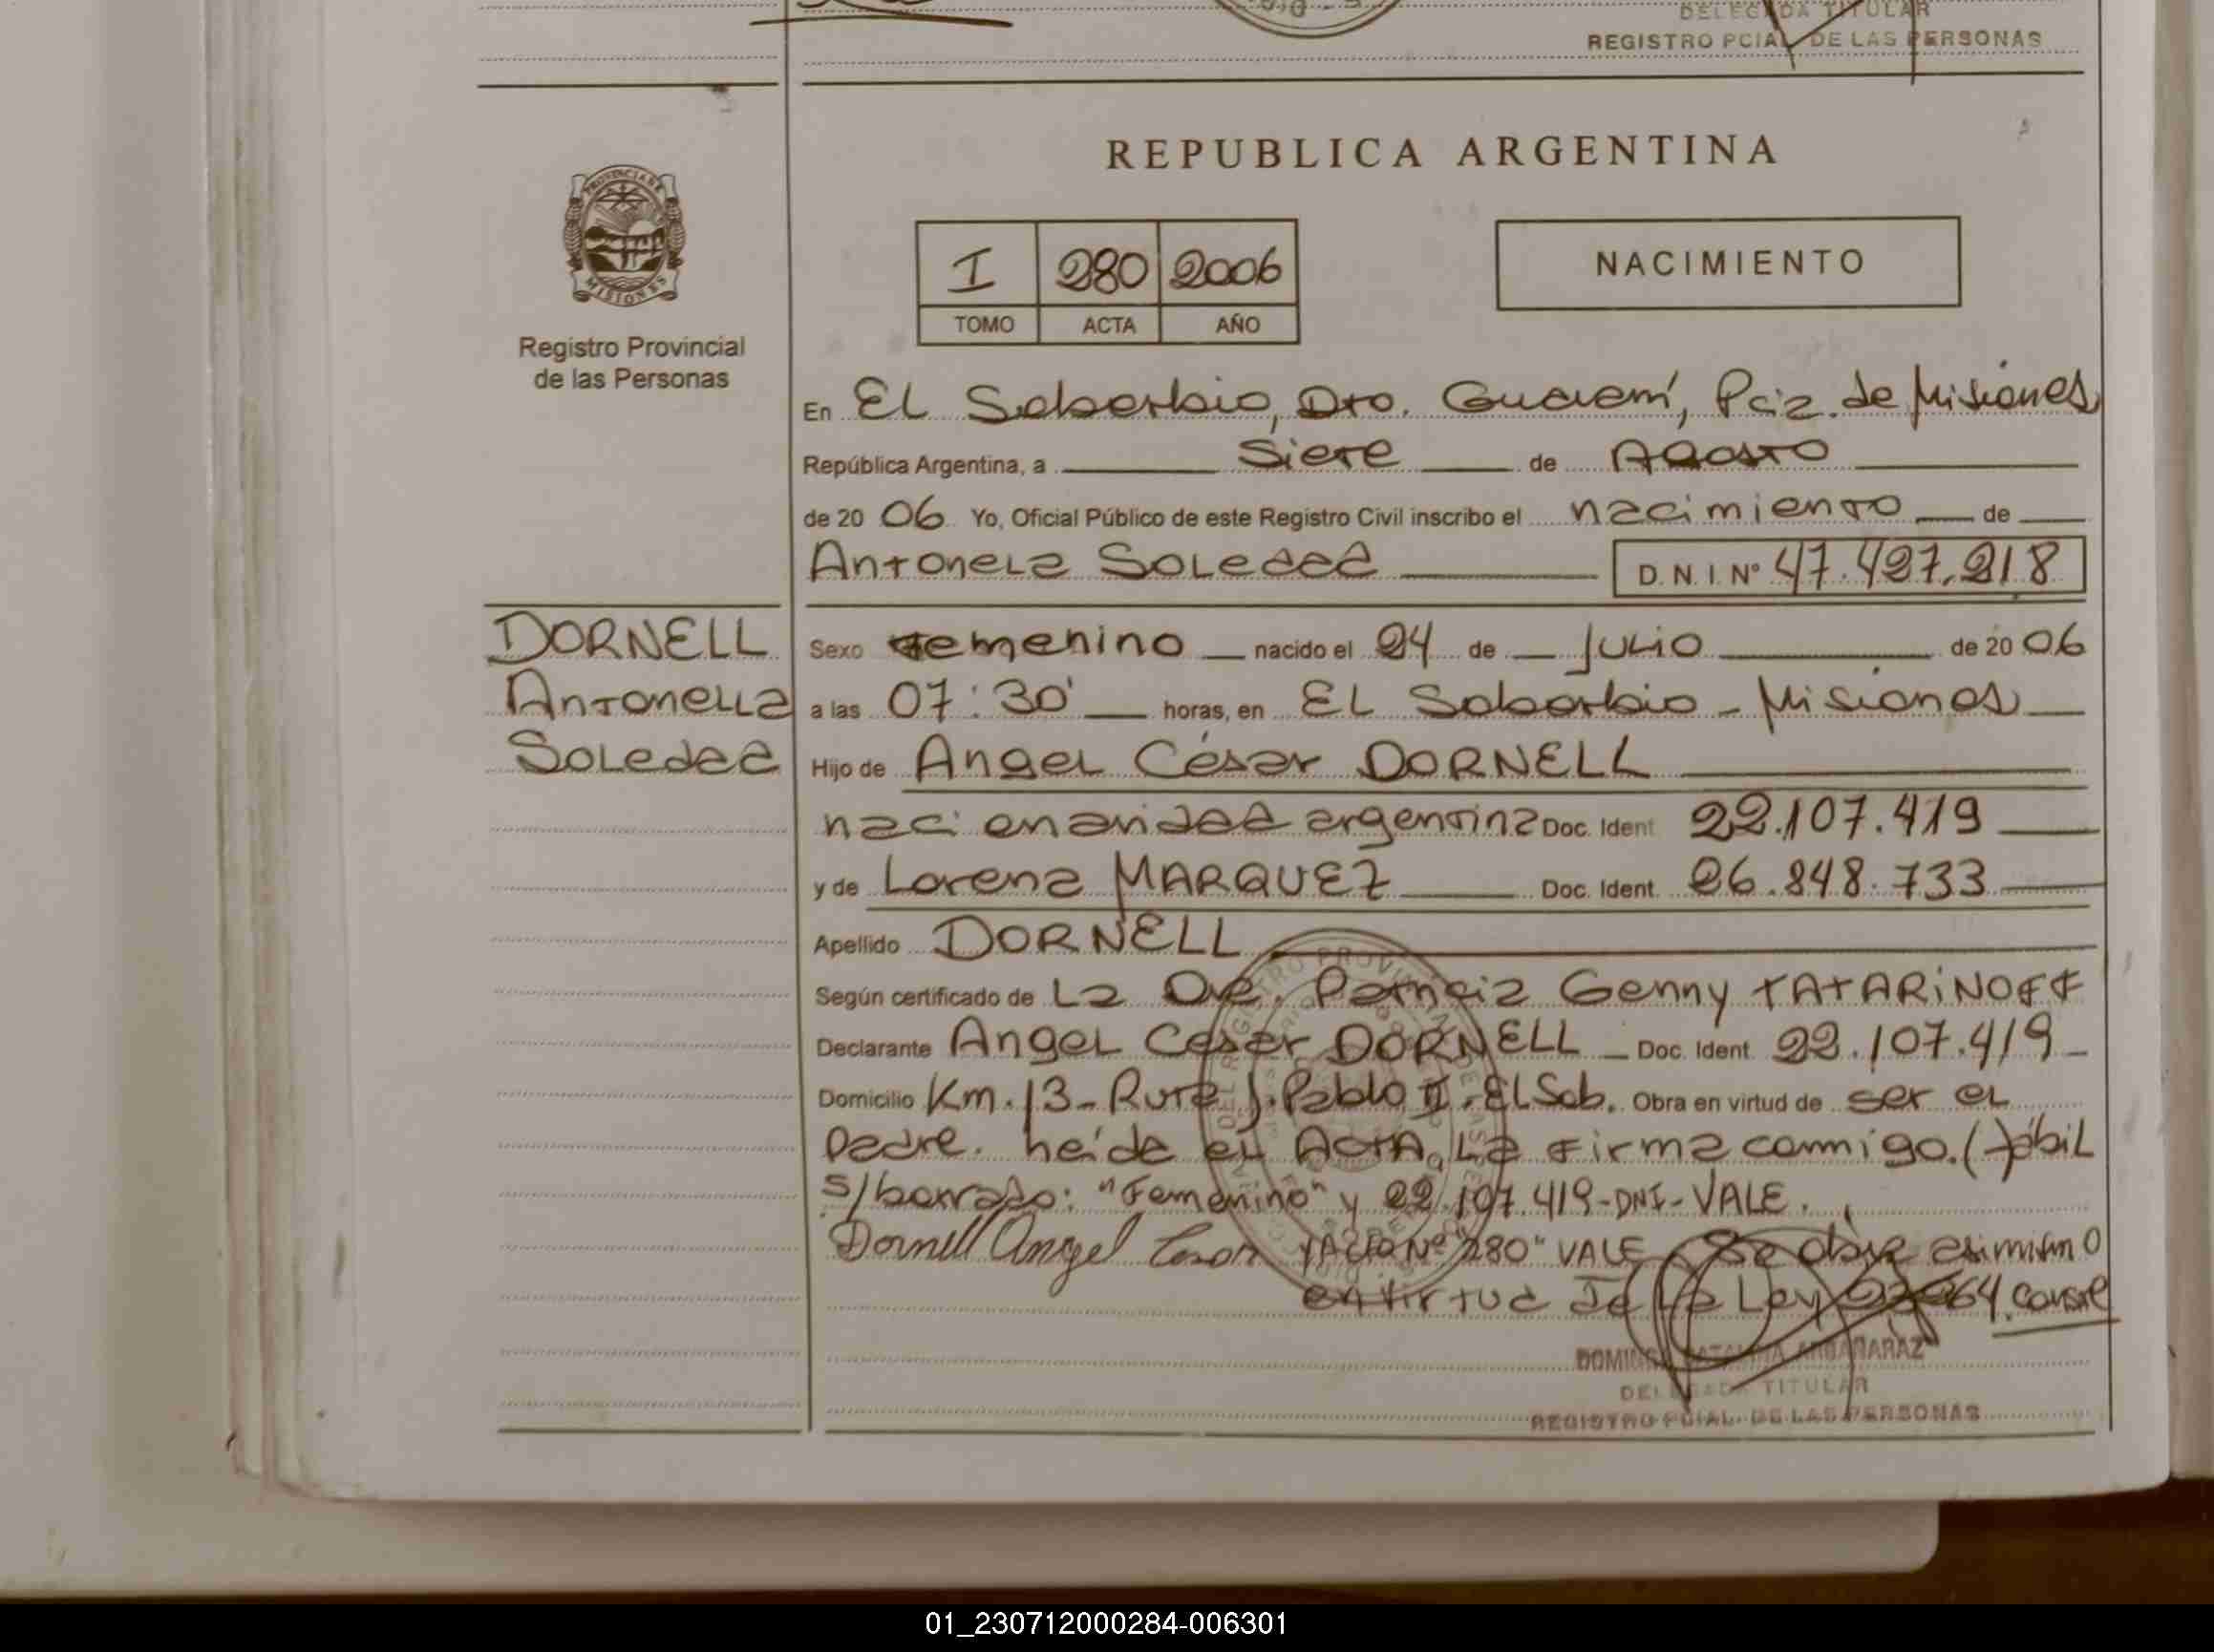 DELEGADA TITULAR
REGISTRO PCIAL DE LAS PERSONAS
REPUBLICA ARGENTINA
PROVINCIA DE
MISIONES
Registro Provincial
de las Personas
I 280 2006
TOMO ACTA AÑO
NACIMIENTO
En EL Soberbio, Dto. Guaraní, Pcia. de Misiones
República Argentina, a Siete de Agosto
de 2006 Yo, Oficial Público de este Registro Civil inscribo el nacimiento de
Antonela Soledad D.N.I. Nº 47.427.218
DORNELL
Antonella
Soledad
Sexo Femenino nacido el 24 de Julio de 2006
a las 07:30' horas, en EL Soberbio - Misiones
Hijo de Angel César DORNELL
nacionalidad argentina Doc. Ident 22.107.419
y de Lorena MARQUEZ Doc. Ident. 26.848.733
Apellido DORNELL
Según certificado de La Dra. Patricia Genny TATARINOFF
Declarante Angel César DORNELL Doc. Ident. 22.107.419
Domicilio Km. 13 - Ruta J. Pablo II. El Sob. Obra en virtud de ser el
padre. leída el ACTA, La firma conmigo.
S/borrado: "Femenino" y 22.107.419-DNI-VALE.
Dornell Angel Cesar y Acta Nº "280" VALE Se asimismo
en virtud de la Ley conste
DELEGADA TITULAR
REGISTRO PCIAL. DE LAS PERSONAS
01_230712000284-006301